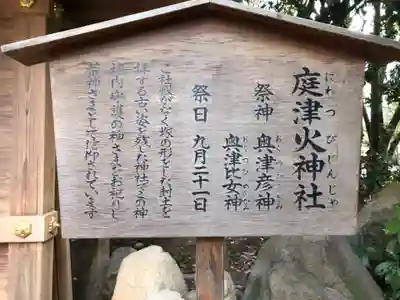 庭津火神社
にわつびじんじゃ
祭神 奥津彦神
おきつひこのかみ
奥津比女神
おきつひめのかみ
祭日 九月二十一日
こ社殿がなく塚の形をした封土を
拝する古い姿を残した神社でこの神
社内守護の神さまをお祀りし
竈神さまとして信仰されています